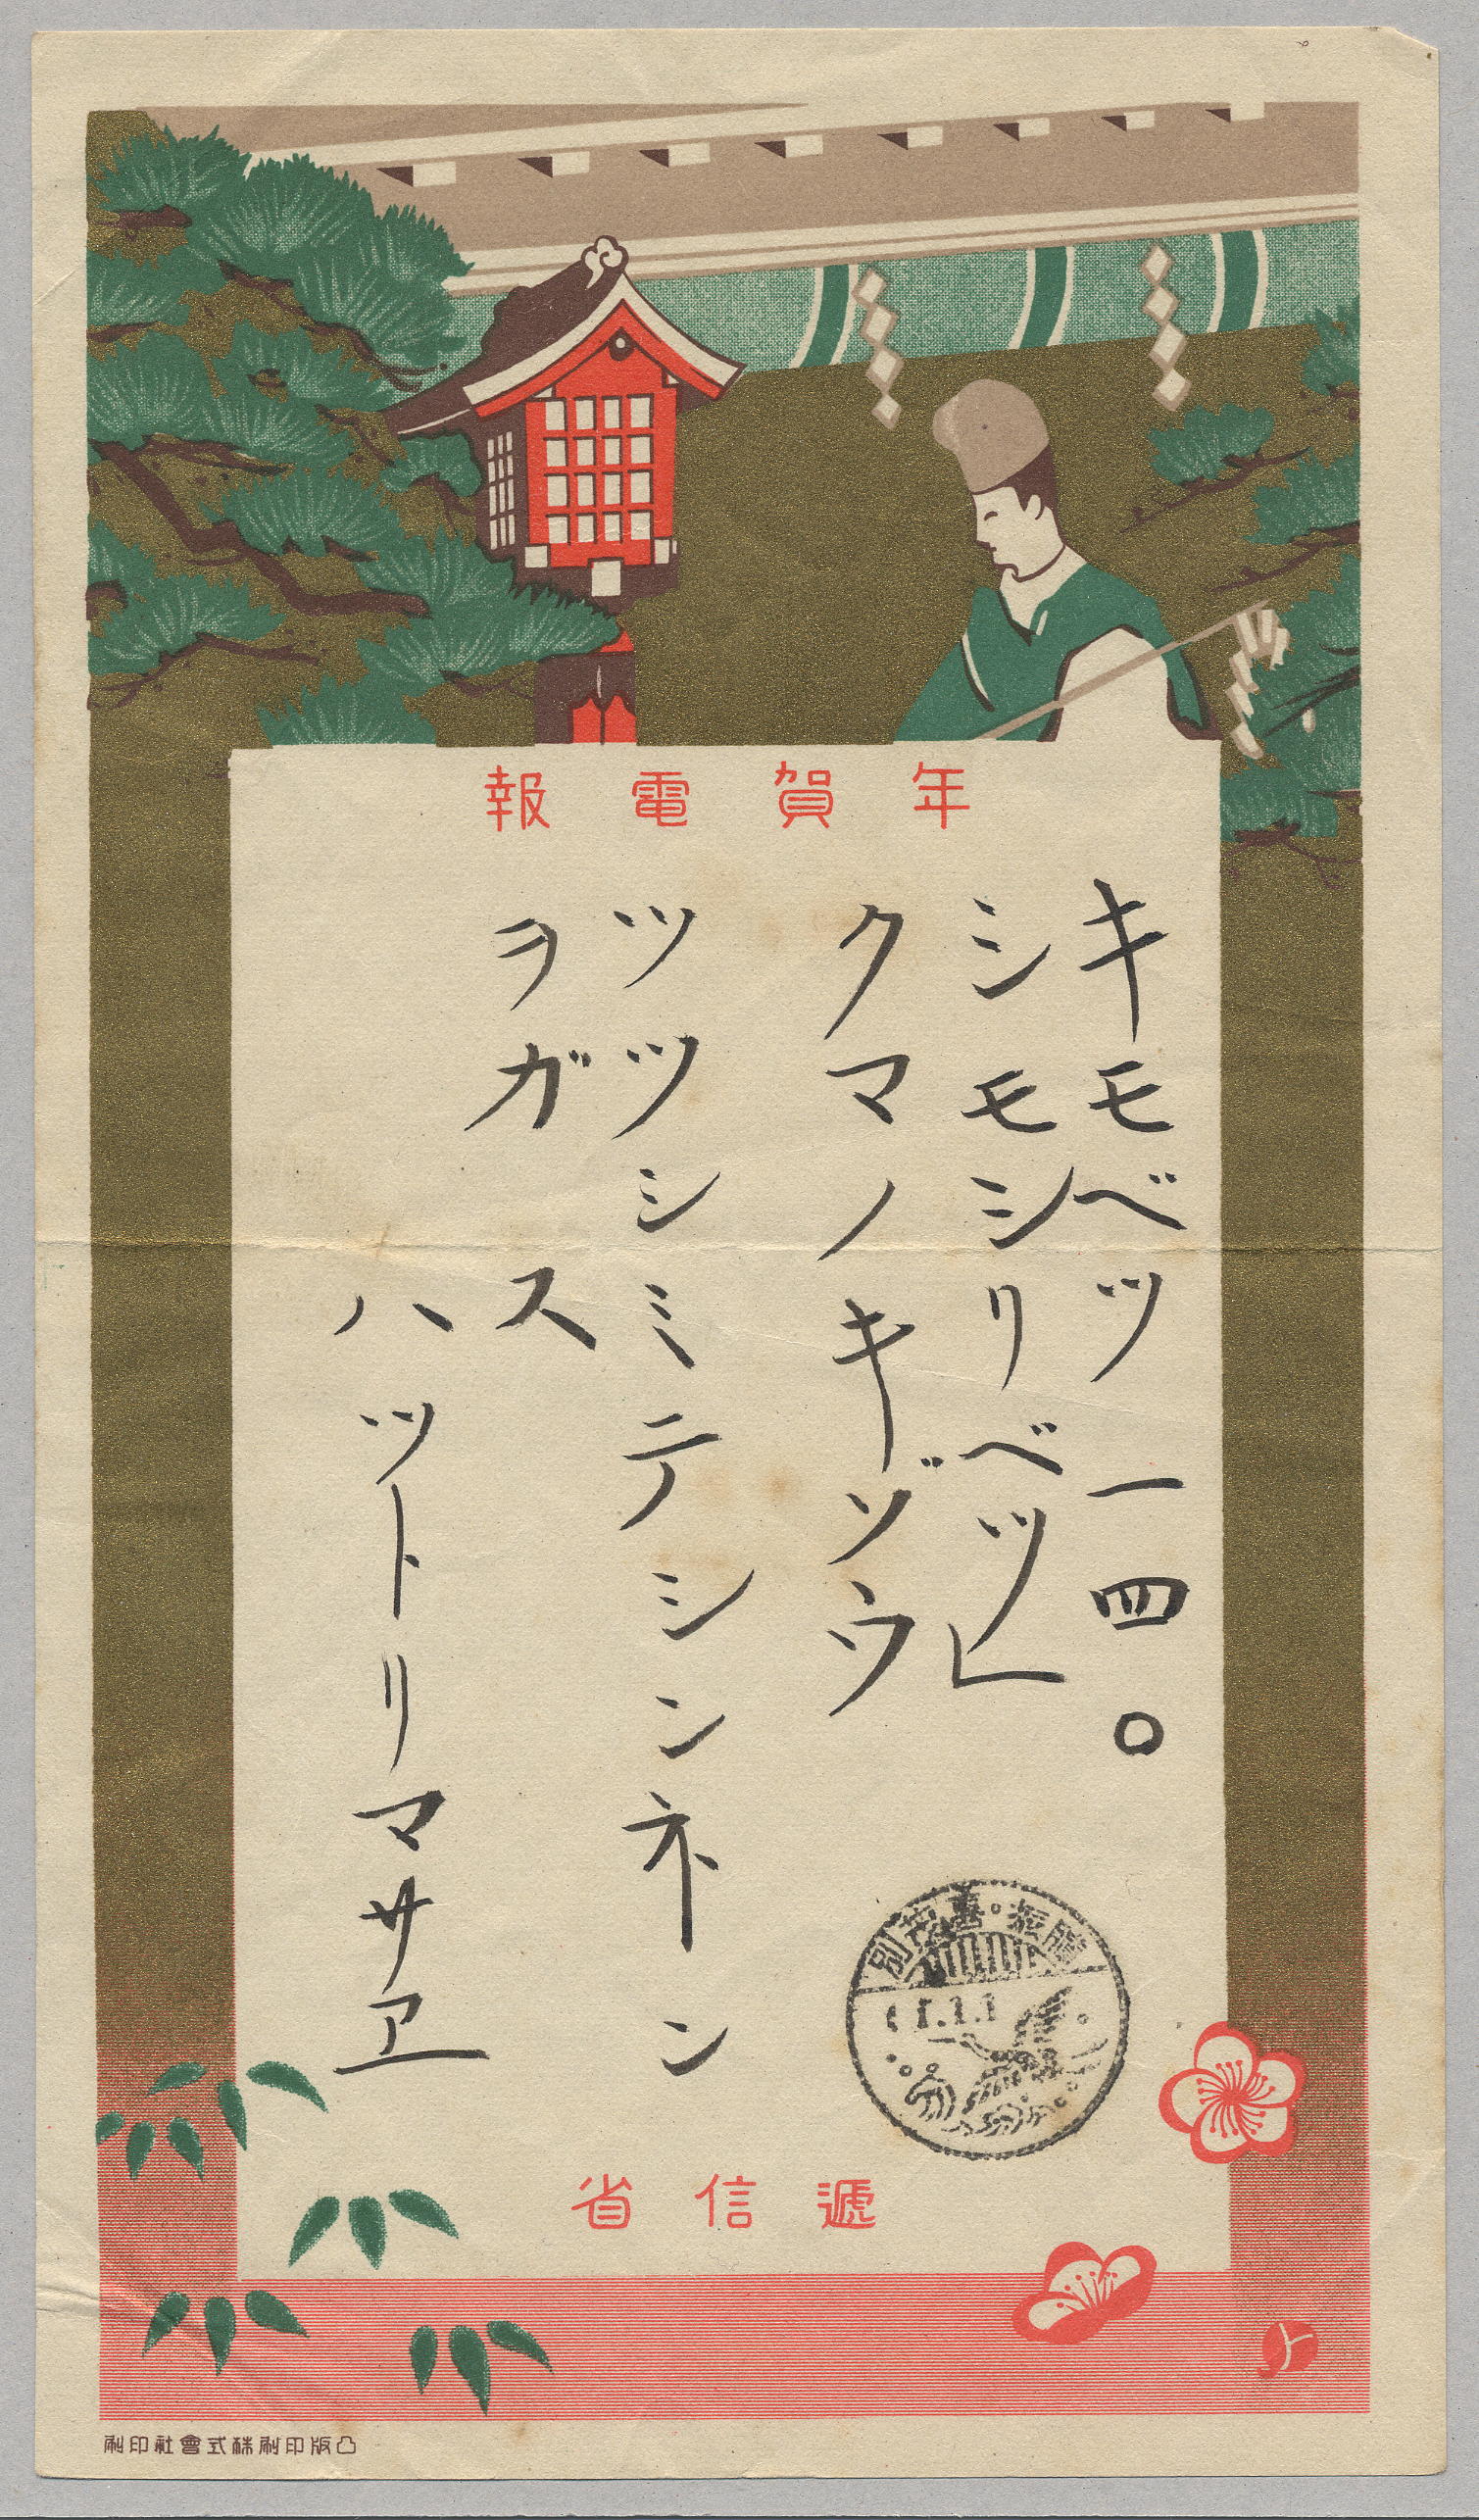 年賀電報
キモベツ 一四〇
シモシリベツ」
クマノキゾウ
ツツシミテシンネン
ヲガ ス
ハットリマサヱ
膽振・喜茂別
1.1.1
遞信省
凸版印刷株式會社印刷